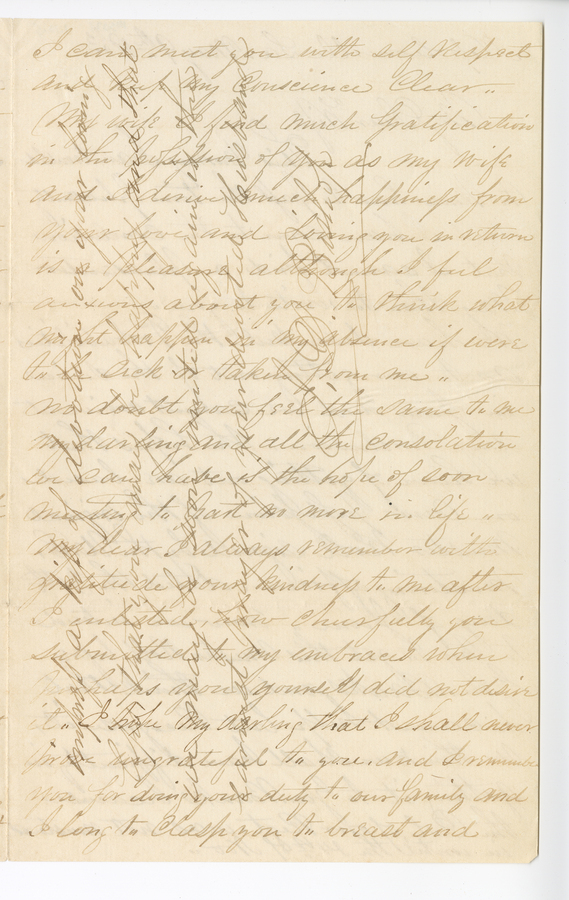 I can meet you with self respect
and keep my Conscience Clear "
My wife I find much Gratification
in the possession of you as my wife
and I derive much happiness from
your love and loving you in return
is a pleasure although I feel
anxious about you to think what
might happen in my absence if were
to be sick or taken from me "
no doubt you feel the same to me
my darling and all the consolation
we can have is the hope of soon
meeting to part no more in life "
my dear I always remember with
gratitude your kindness to me after
I enlisted, how cheerfully you
submitted to my embraces when
perhaps you yourself did not desire
it " I hope my darling that I shall never
prove ungrateful to you. and I remember
you for doing your duty to our family and
I long to Clasp you to breast and
imprint a kiss of devotion on your
that you may be happy and that
we may soon be united again is the
earnest prayer of your devoted Husband